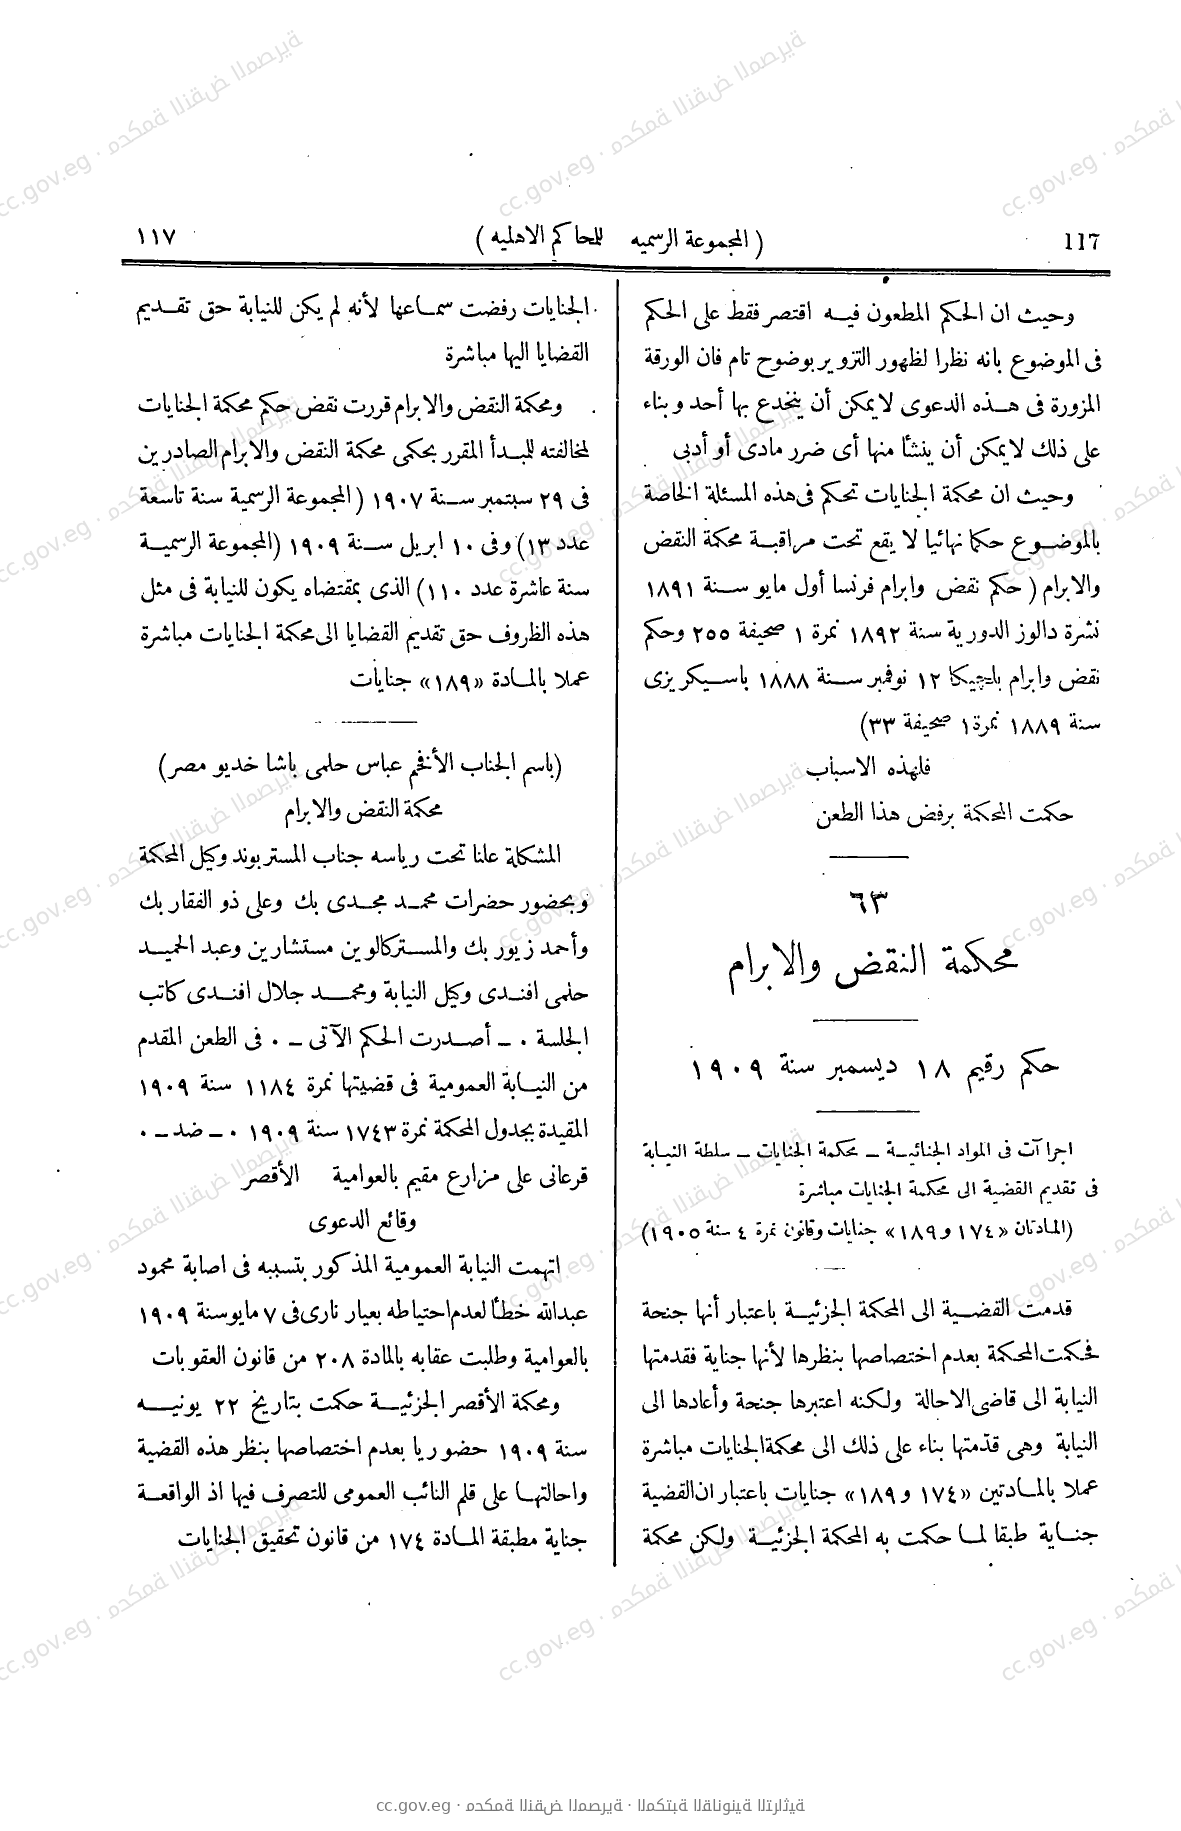 117
( المجموعة الرسميه للمحاكم الاهليه )
١١٧
وحيث ان الحكم المطعون فيه اقتصر فقط على الحكم
فى الموضوع بانه نظرا لظهور التزوير بوضوح تام فان الورقة
المزورة فى هذه الدعوى لا يمكن أن ينخدع بها أحد وبناء
على ذلك لا يمكن أن ينشأ منها أى ضرر مادى أو أدبى
وحيث ان محكمة الجنايات تحكم فى هذه المسئلة الخاصة
بالموضوع حكما نهائيا لا يقع تحت مراقبة محكمة النقض
والابرام ( حكم نقض وابرام فرنسا أول مايو سنة ١٨٩١
نشرة دالوز الدورية سنة ١٨٩٢ نمرة ١ صحيفة ٢٥٥ وحكم
نقض وابرام بلجيكا ١٢ نوفمبر سنة ١٨٨٨ باسيكريزى
سنة ١٨٨٩ نمرة ١ صحيفة ٣٣)
فلهذه الاسباب
حكمت المحكمة برفض هذا الطعن
٦٣
محكمة النقض والابرام
حكم رقيم ١٨ ديسمبر سنة ١٩٠٩
اجراآت فى المواد الجنائية – محكمة الجنايات – سلطة النيابة
فى تقديم القضية الى محكمة الجنايات مباشرة
(المادتان «١٧٤ و ١٨٩» جنايات وقانون نمرة ٤ سنة ١٩٠٥)
قدمت القضية الى المحكمة الجزئية باعتبار أنها جنحة
فحكمت المحكمة بعدم اختصاصها بنظرها لأنها جناية فقدمتها
النيابة الى قاضى الاحالة ولكنه اعتبرها جنحة وأعادها الى
النيابة وهى قدّمتها بناء على ذلك الى محكمة الجنايات مباشرة
عملا بالمادتين «١٧٤ و ١٨٩» جنايات باعتبار ان القضية
جناية طبقا لما حكمت به المحكمة الجزئية ولكن محكمة
الجنايات رفضت سماعها لأنه لم يكن للنيابة حق تقديم
القضايا اليها مباشرة
ومحكمة النقض والابرام قررت نقض حكم محكمة الجنايات
لمخالفته للمبدأ المقرر بحكمى محكمة النقض والابرام الصادرين
فى ٢٩ سبتمبر سنة ١٩٠٧ ( المجموعة الرسمية سنة تاسعة
عدد ١٣) وفى ١٠ ابريل سنة ١٩٠٩ (المجموعة الرسمية
سنة عاشرة عدد ١١٠) الذى بمقتضاه يكون للنيابة فى مثل
هذه الظروف حق تقديم القضايا الى محكمة الجنايات مباشرة
عملا بالمادة «١٨٩» جنايات
(باسم الجناب الأفخم عباس حلمى باشا خديو مصر)
محكمة النقض والابرام
المشكلة علنا تحت رياسه جناب المستر بوند وكيل المحكمة
وبحضور حضرات محمد مجدى بك وعلى ذو الفقار بك
وأحمد زيور بك والمستركالوين مستشارين وعبد الحميد
حلمى افندى وكيل النيابة ومحمد جلال افندى كاتب
الجلسة ٠ – أصدرت الحكم الآتى – ٠ فى الطعن المقدم
من النيابة العمومية فى قضيتها نمرة ١١٨٤ سنة ١٩٠٩
المقيدة بجدول المحكمة نمرة ١٧٤٣ سنة ١٩٠٩ ٠ – ضد – ٠
قرعانى على مزارع مقيم بالعوامية الأقصر
وقائع الدعوى
اتهمت النيابة العمومية المذكور بتسببه فى اصابة محمود
عبدالله خطأ لعدم احتياطه بعيار نارى فى ٧ مايو سنة ١٩٠٩
بالعوامية وطلبت عقابه بالمادة ٢٠٨ من قانون العقوبات
ومحكمة الأقصر الجزئية حكمت بتاريخ ٢٢ يونيه
سنة ١٩٠٩ حضوريا بعدم اختصاصها بنظر هذه القضية
واحالتها على قلم النائب العمومى للتصرف فيها اذ الواقعة
جناية مطبقة المادة ١٧٤ من قانون تحقيق الجنايات
cc.gov.eg · محكمة النقض المصرية · المكتبة القانونية التراثية